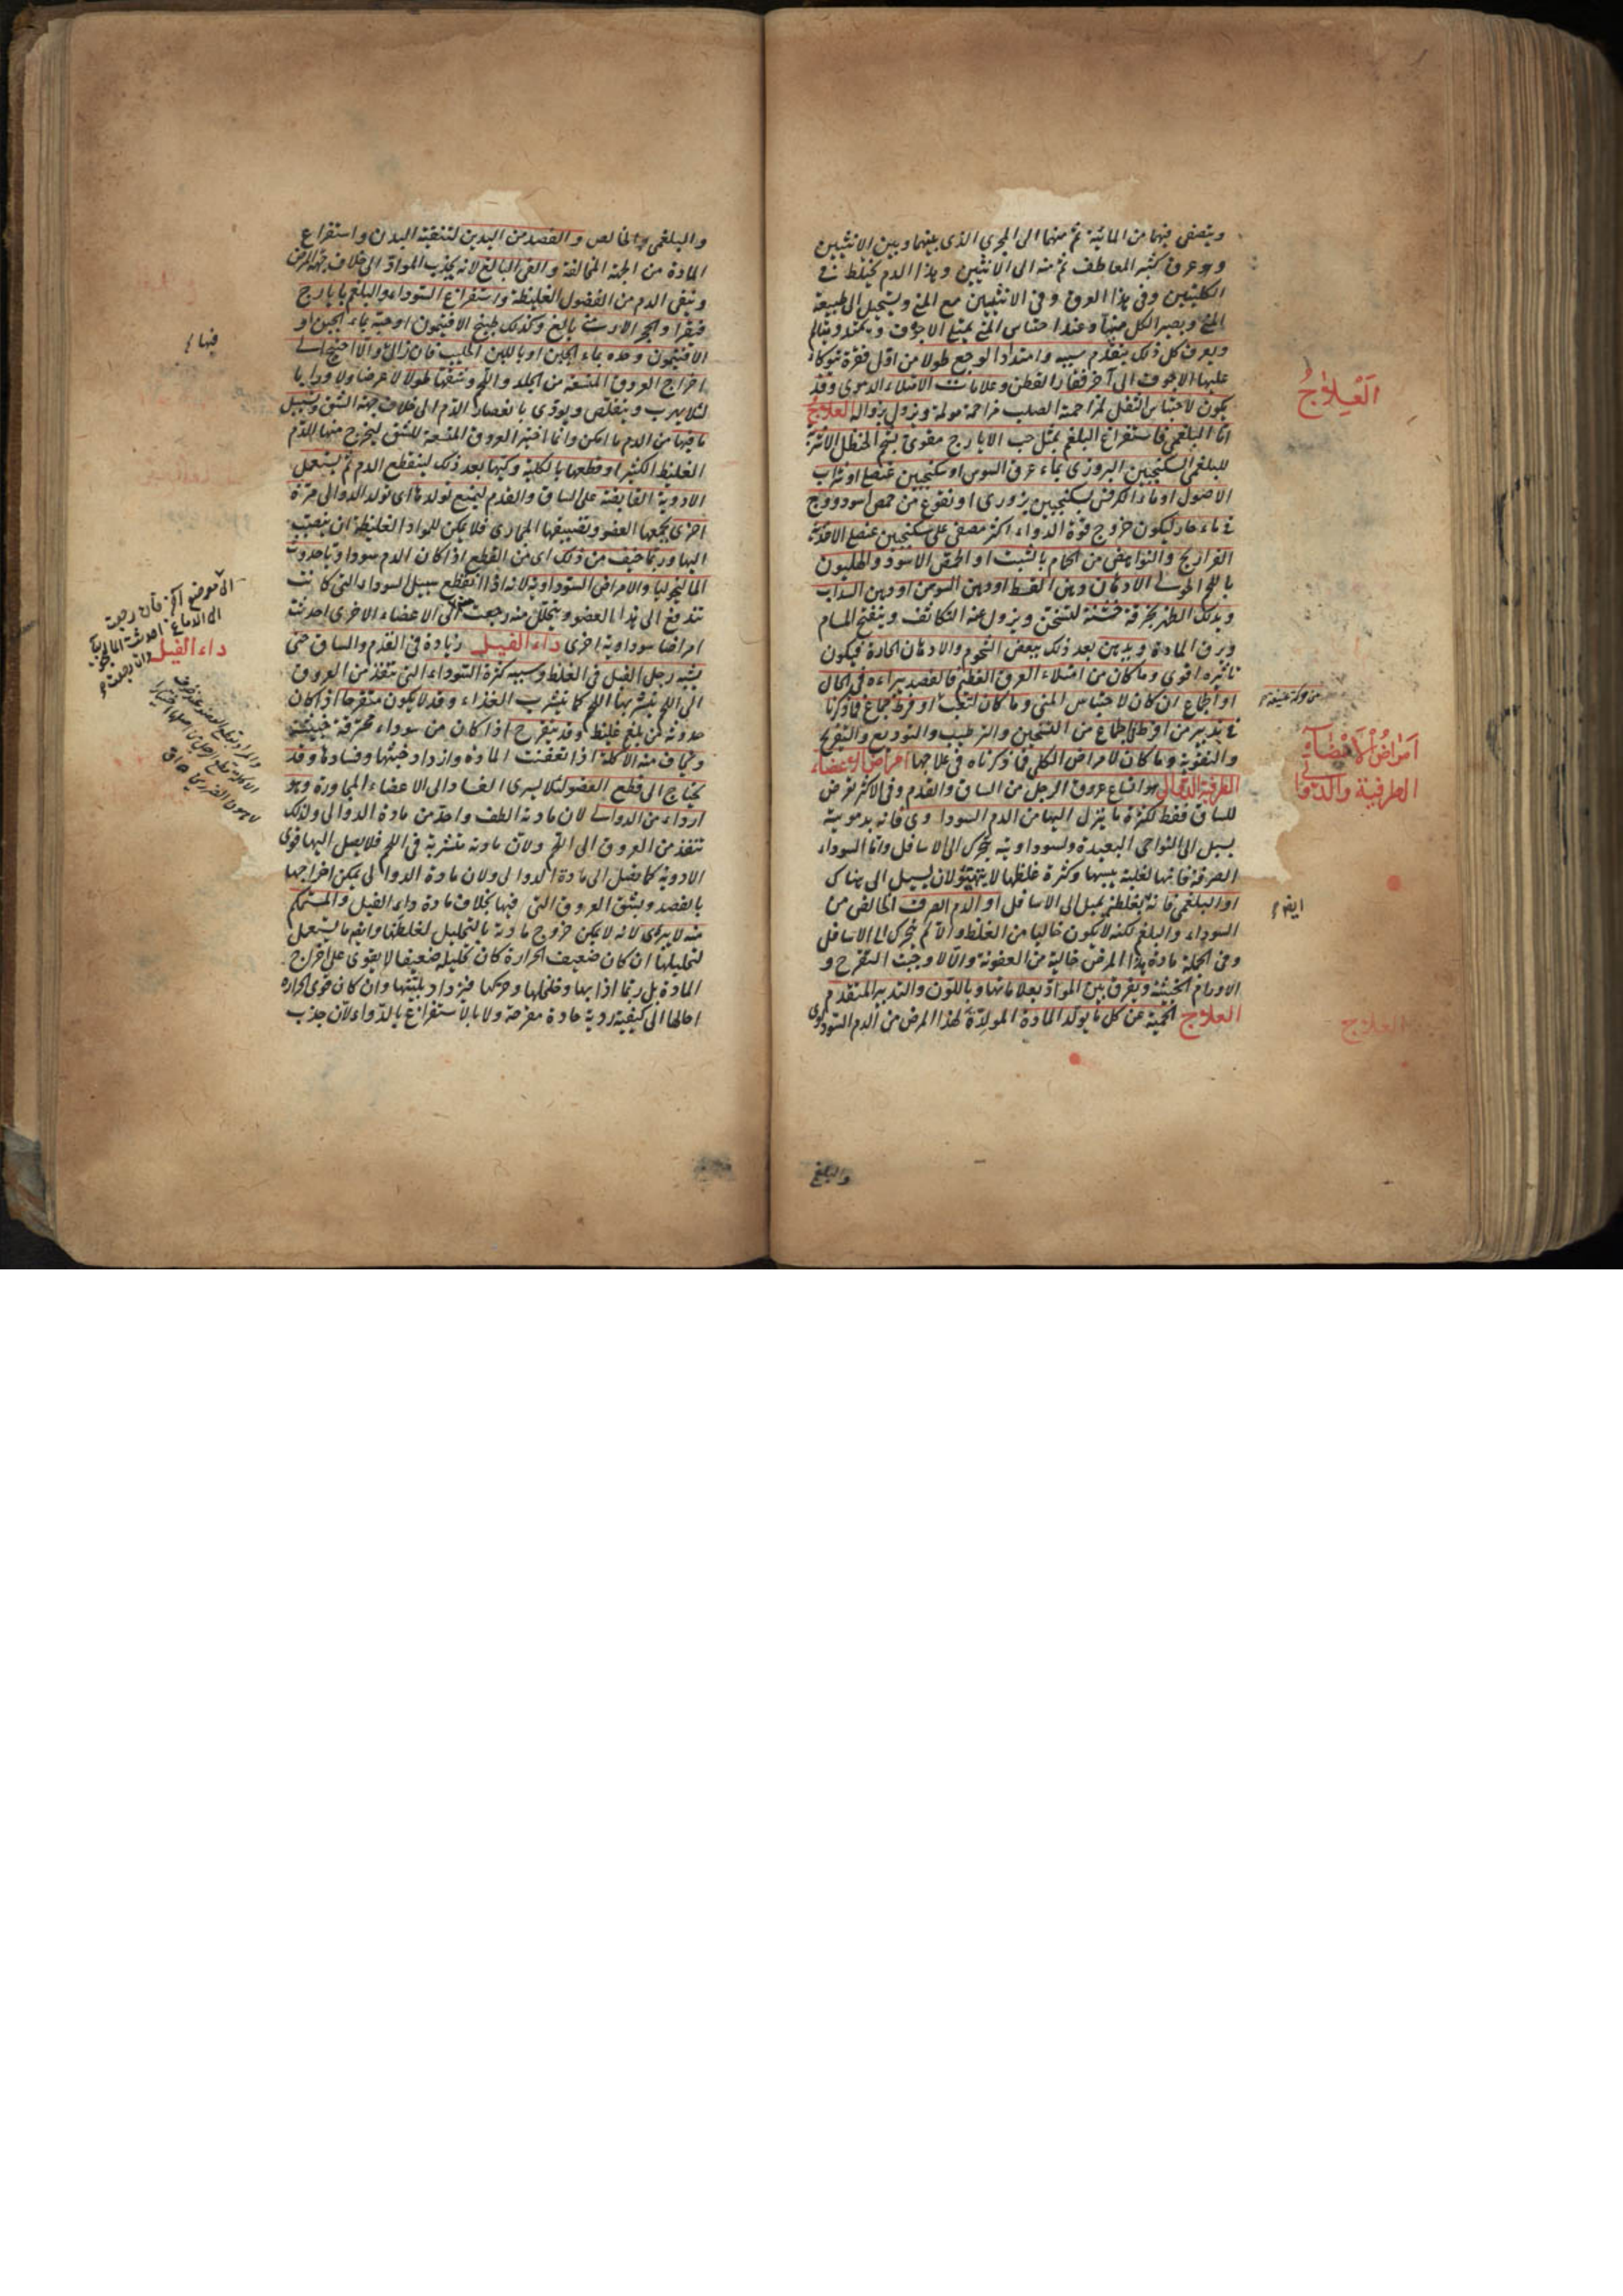 ويتصفى فيها من المائية ثم منها الى المجرى الذى بينها وبين الانثيين
وهو عرق كثير المعاطف ثم منه الى الانثيين وهذا الدم يختلط فى
الكليتين وفى هذا العرق وفى الانثيين مع المنى ويستحيل الى طبيعة
المنى ويصير الكل منيا وعند احتباس المنى يمتلئ الاجوف ويتمدد ويتالم
ويعرف كل ذلك بتقدم سببه وامتداد الوجع طولا من اول فقرة توكاء
عليها الاجوف الى آخر فقار القطن وعلامات الامتلاء الدموى وقد
يكون لاحتباس الثفل لمزاحمة الصلب مزاحمة مولمة ويزول بزواله العلاج
اما البلغمى فاستفراغ البلغم بمثل حب الايارج مقوى بشحم الحنظل
للبلغم السكنجبين البزورى بماء عرق السوس او سكنجبين عنصلى او شراب
الاصول او ماء الكرفس بسكنجبين بزورى او نقوع من حمص اسود ووج
فى ماء حار ليكون خروج قوة الدواء اكثر مصفى على سكنجبين عنصلى الاغذية
الفراريج والنواهض من الحمام بالشبت او الحمص الاسود والهليون
بالملح الادهان دهن القسط او دهن السوسن او دهن السداب
ويدلك الظهر بخرقة خشنة لتسخن ويزول عنه التكاثف وينفتح المسام
ويرق المادة ويدهن بعد ذلك ببعض الشحوم والادهان الحارة فيكون
تاثيره اقوى وما كان من امتلاء العرق العظيم فالفصد يبراءه فى الحال
او الجماع ان كان لاحتباس المنى وما كان لتعب او فرط جماع فما ذكرنا
فى تدبير من افرط فى الجماع من التسخين والترطيب والتوديع والتفريح
والتقوية وما كان لامراض الكلى فما ذكرناه فى علاجها امراض الاعضاء
الطرفية الدوالى هو اتساع عروق الرجل من الساق والقدم وفى الاكثر تعرض
للساق فقط لكثرة ما ينزل اليها من الدم السوداوى فانه بدمويته
يسيل الى النواحى البعيدة ولسوداويته يتحرك الى الاسافل واما السوداء
الصرفة فانها لغلبة يبسها وكثرة غلظها لا يتهيؤ لان يسيل الى هناك
او البلغمى فانه بغلظه يميل الى الاسافل او الدم الصرف الخالص من
السوداء والبلغم لكنه لا يكون خاليا من الغلظ والا لم يتحرك الى الاسافل
وفى الجملة مادة هذا المرض خالية من العفونة والا لاوجبت التقرح و
الاورام الخبيثة ويفرق بين المواد بعلاماتها وباللون والتدبير المتقدم
العلاج الحمية عن كل ما يولد المادة المولدة لهذا المرض من الدم السوداوى
العلاج
امراض الاعضاء
الطرفية والدوالى
ايضا
العلاج
والبلغم
والبلغمى والخالص والفصد من اليدين لتنقية البدن واستفراغ
المادة من الجهة المخالفة والقى البالغ لانه يجذب المواد الى خلاف جهة المرض
وينقى الدم من الفضول الغليظة واستفراغ السوداء والبلغم بايارج
فيقرا وحجر الارمنى بالغ وكذلك طبيخ الافتيمون او حبه بماء الجبن او
الافتيمون وحده بماء الجبن او باللبن الحليب فان زال والا احتيج الى
اخراج العروق المتسعة من الجلد واللحم وشقها طولا لا عرضا ولا ورابا
لئلا يهرب ويتقلص ويؤدى بانفصار الدم الى خلاف جهة الشق ويسيل
ما فيها من الدم ما امكن وانما اختير العروق المتسعة للشق ليخرج منها الدم
الغليظ الكثير او قطعها بالكلية وكيها بعد ذلك لينقطع الدم ثم يستعمل
الادوية القابضة على الساق والقدم ليمنع تولدها اى تولد الدوالى مرة
اخرى بجمعها العضو وتضييقها المجارى فلا يمكن للمواد الغليظة ان ينصب
اليها وربما خيف من ذلك اى من القطع اذا كان الدم سوداويا حدوث
الماليخوليا والامراض السوداوية لانه اذا انقطع سبيل السوداء التى كانت
تندفع الى هذا العضو ويتحلل منه رجعت الى الاعضاء الاخرى احدثت
امراضا سوداوية اخرى داء الفيل زيادة فى القدم والساق حتى
يشبه رجل الفيل فى الغلظ وسببه كثرة السوداء التى تنفذ من العروق
الى اللحم يتشربها اللحم كما يتشرب الغذاء وقد لا يكون متقرحا اذا كان
حدوثه من بلغم غليظ وقد يتقرح اذا كان من سوداء محترقة خبيثة
ويخاف منه الاكلة اذا تعفنت المادة وازداد خبثها وفسادها وقد
يحتاج الى قطع العضو لئلا يسرى الفساد الى الاعضاء المجاورة وهو
ارداء من الدوالى لان مادته الطف واحد من مادة الدوالى ولذلك
تنفذ من العروق الى اللحم ولان مادته متشربة فى اللحم فلا يصل اليها قوى
الادوية كما تصل الى مادة الدوالى ولان مادة الدوالى يمكن اخراجها
بالفصد وبشق العروق التى فيها بخلاف مادة داء الفيل والمستحكم
منه لا يبراى لانه لا يمكن خروج مادته بالتحليل لغلظها وايضا ما يستعمل
لتحليلها ان كان ضعيف الحرارة كان تحليله ضعيفا لا يقوى على اخراج
المادة بل ربما اذابها وخلخلها وحركها فيزداد بليتها وان كان قوى الحرارة
احالها الى كيفية ردية حادة مقرحة ولا بالاستفراغ بالدواء لان جذب
فيها
الى موضع آخر فان رجعت
الى الدماغ احدثت الماليخوليا
داء الفيل